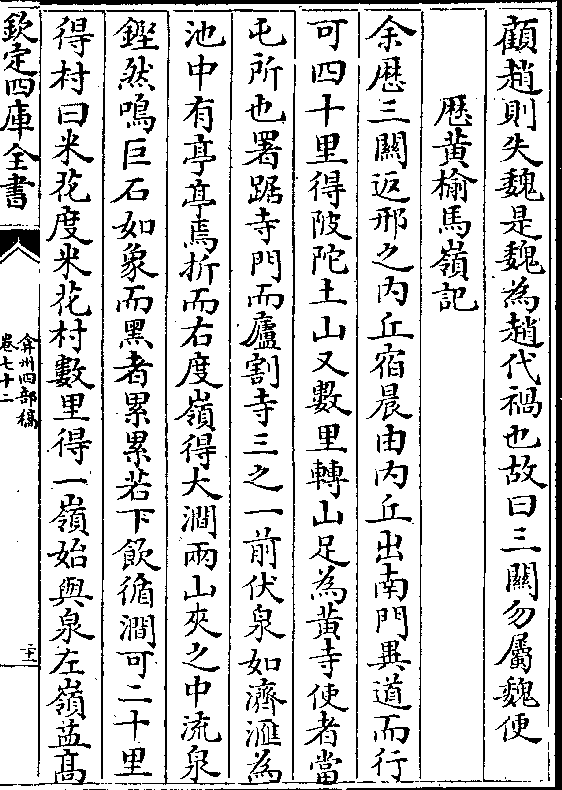 顧趙則失魏是魏為趙代禍也故曰三關勿屬魏便
歴黄榆馬嶺記
余歴三關返邢之内丘宿晨由内丘出南門異道而行
可四十里得陂陀土山又數里轉山足為黄寺使者當
屯所也署踞寺門而廬割寺三之一前伏泉如濟滙為
池中有亭亭焉折而右度嶺得大澗兩山夾之中流泉
鏗然鳴巨石如象而黑者累累若下飲循澗可二十里
得村曰米花度米花村數里得一嶺始與泉左嶺葢髙
欽定四庫全書
弇州四部稿
卷七十二